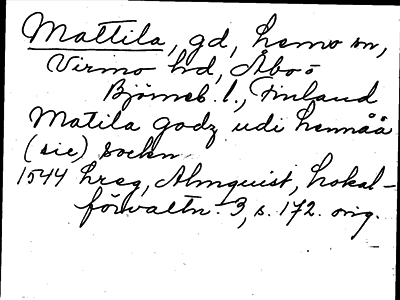 Mattila, gd, Lemo sn,
Virmo hd, Åbo o
Björneb. l., Finland
Matila godz udi hennåå
(sic) Sockn
1544 hreg, Almquist, Lokal-
förvaltn. 3, s. 172. orig.